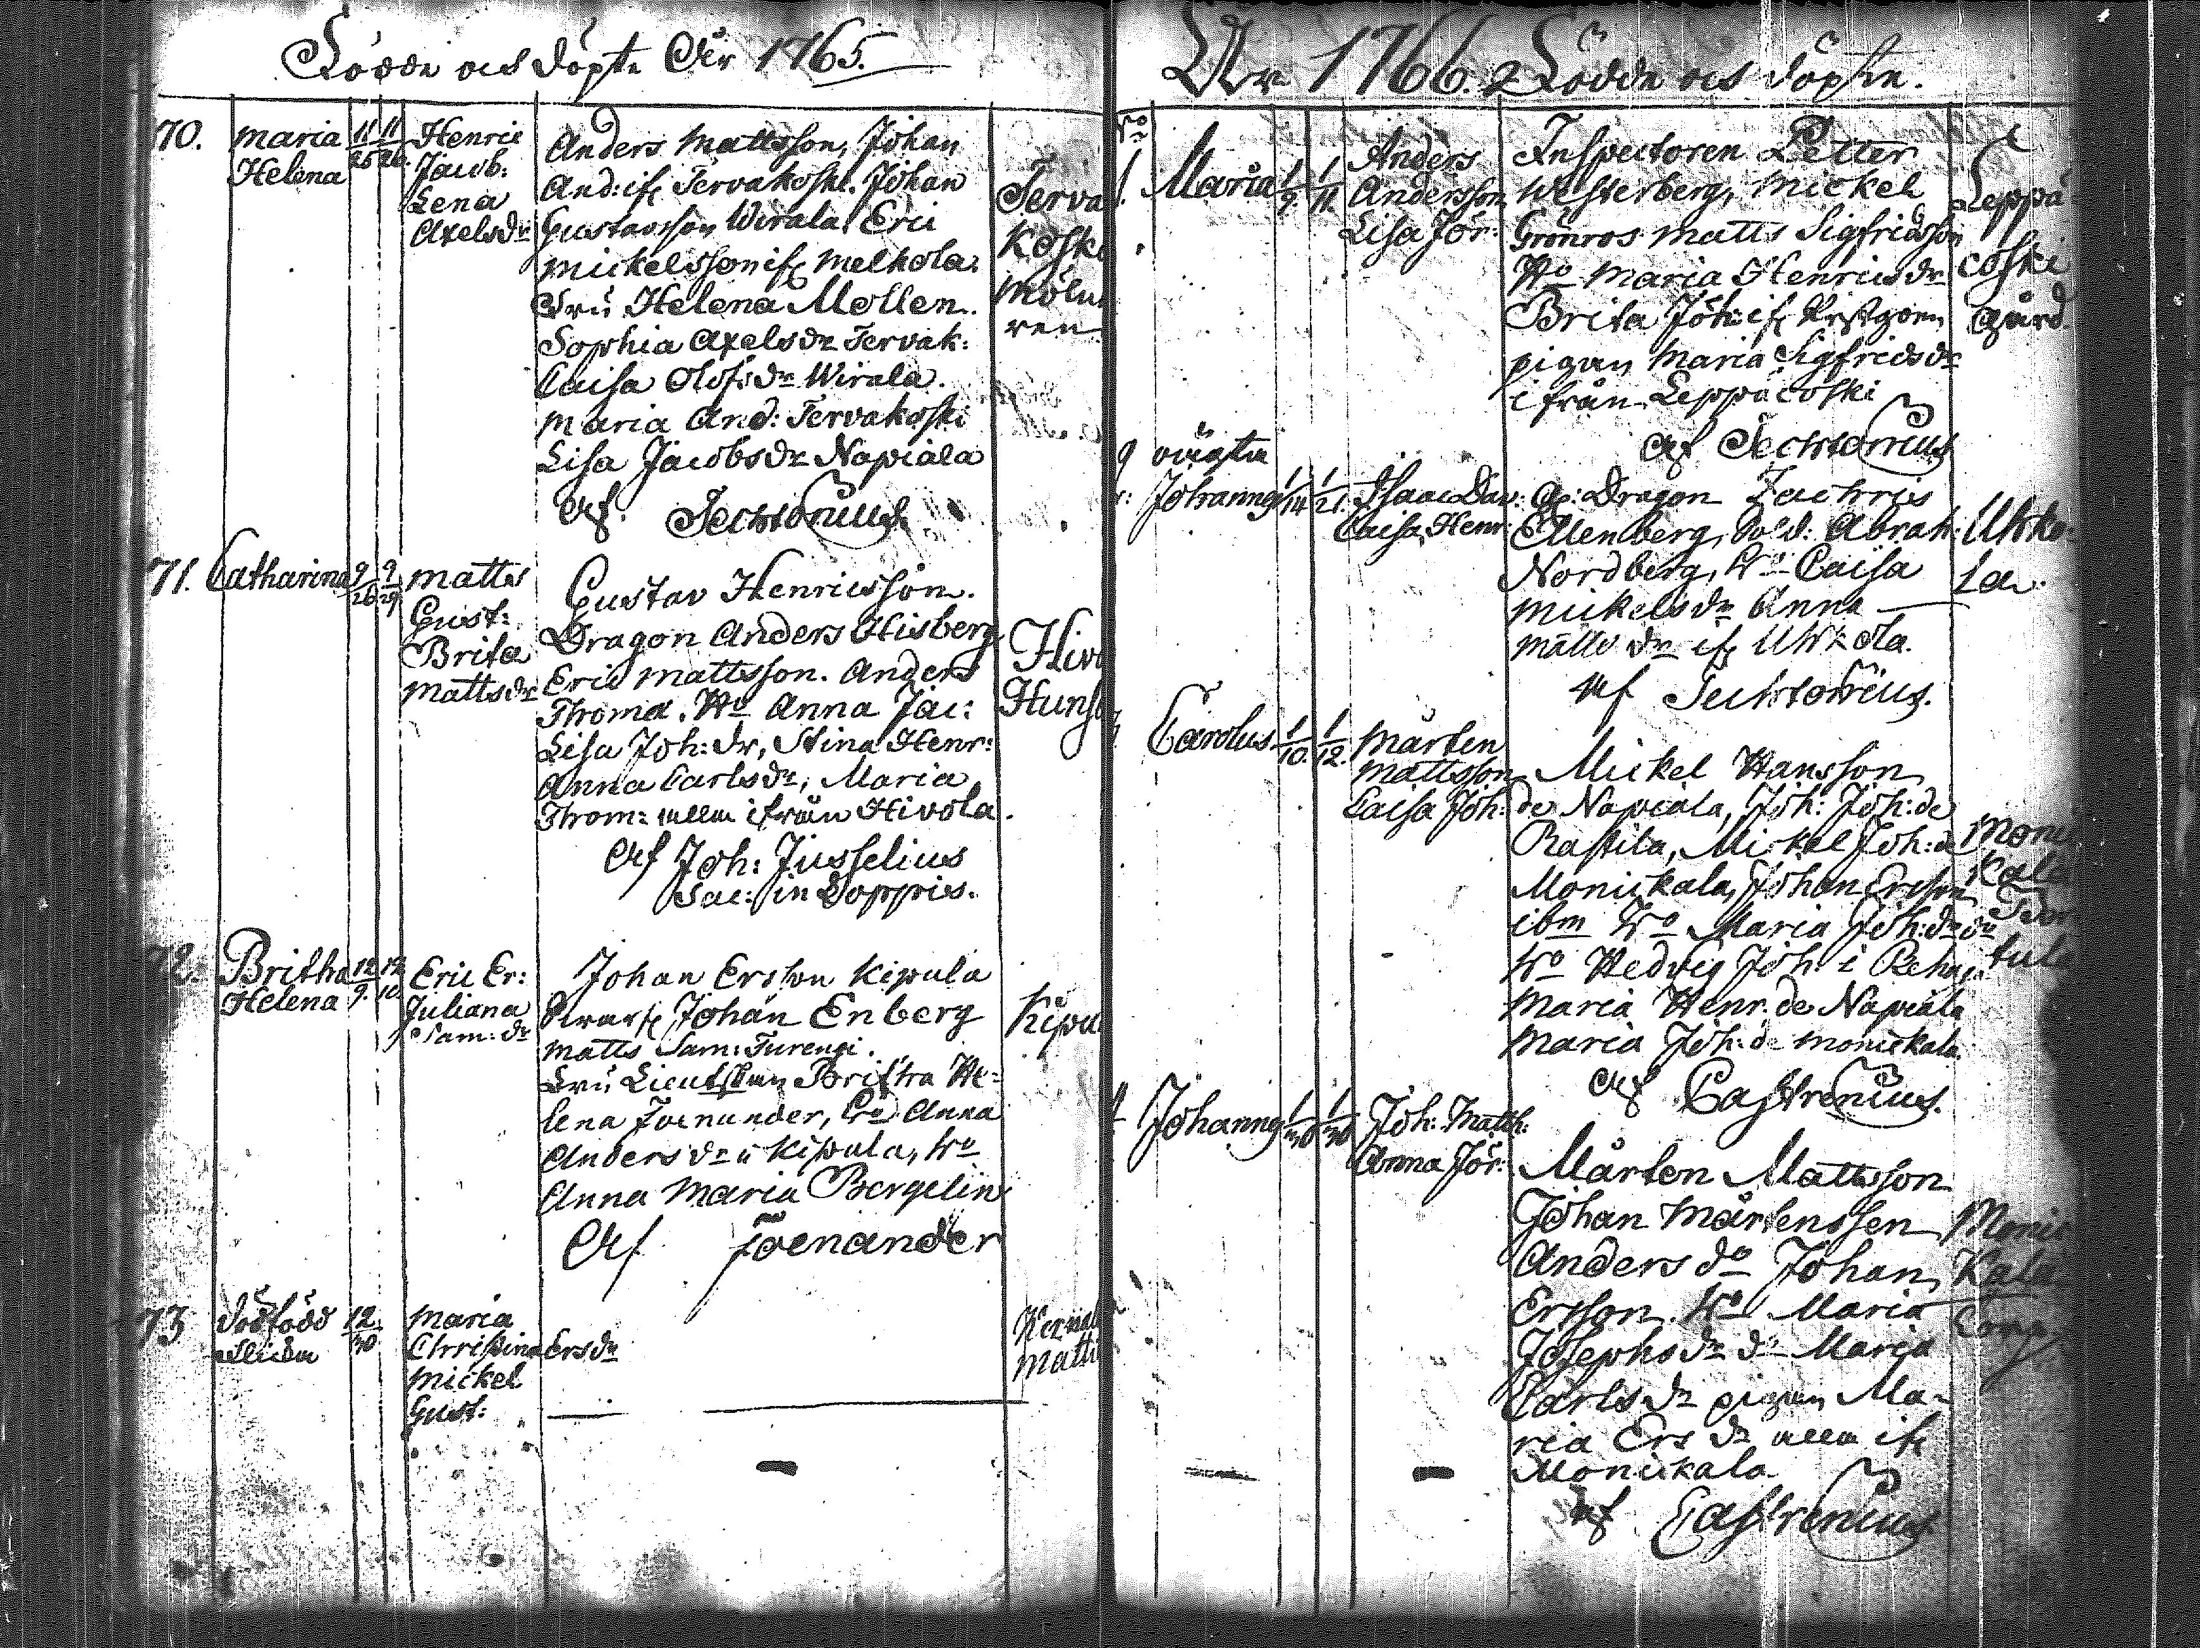 Födde och döpte Åhr 1765.
70. Maria Helena 11/25 11/26. Henric Jacob: Lena Axelsdr
Anders Mattsson, Johan
And: ifr Tervakoski. Johan
Gustavsson Wirala, Eric
Mickelsson ifr Melkola.
Fru Helena Mollen.
Sophia Axelsdr Tervak:
Caisa Olofsdr Wirala.
Maria And: Tervakoski
Lisa Jacobsdr Napiala
Af. Techtorius.
Terva
koski
Möln
ren
71. Catharina 9/26 9/29 Matts Gust: Brita Mattsdr
Gustav Henricsson.
Dragon Anders Hisberg
Eric Mattsson. Anders
Thoma. Ho Anna Jac:
Lisa Joh: dr, Stina Henr:
Anna Carlsdr, Maria
Thom: alla ifrån Hivola.
Af Joh: Jusselius
Sac: in Loppis.
Hivo
Huns
72. Britha Helena 12/9. 12/10. Eric Er: Juliana Sam: dr
Johan Ersson Kipula
Johan Enberg
Matts Sam: Turengi.
Fru Britha He-
lena Foenander, Anna
Andersdr i Kipula, Ho
Anna Maria Bergelin
Af Foenander
Kipu
73 dödfödd 12/30 Maria Christina Ersdr
Mickel
Gust:
Matti
År 1766. Födde och döpte.
No
1. Maria 1/9. 1/11 Anders Andersson Lisa Jör:
Inspectoren Petter
Westerberg, Mickel
Grönros Matts Sigfridsson
Ho Maria Henricsdr
Brita Joh: ifr
pigan Maria Sigfridsdr
ifrån Leppäcoski
af Techtorius
Leppä
coski
gård
oägta
Johannes 1/14 1/21. Isaac Dav: Caisa Henr:
Dragon Zachris
Ellenberg, Sold: Abrah:
Nordberg, Ho Caisa
Mickelsdr Anna
Matts dr ifr Uhkola.
Af Techtorius.
Uhko
la.
Carolus 1/10. 1/12. Mårten Mattsson Caisa Joh:
Mickel Hansson
de Napiala, Joh: Joh: de
Rastila, Mickel Joh: de
Monickala, Johan Ersson
ibm Ho Maria Joh: dr
Ho Hedvig Joh: i Reha
Maria Henr: de Napiala
Maria Joh: de Monickala.
Af Castrenius.
Moni
Kala
tula
Johannes 1/30 1/30 Joh: Matth: Anna Jör:
Mårten Mattsson
Johan Mårtensson
Anders do Johan
Ersson. Ho Maria
Josephsdr do Maria
Carlsdr pigan Ma-
ria Ersdr alla ifr
Monickala
af Castrenius
Moni
Kala